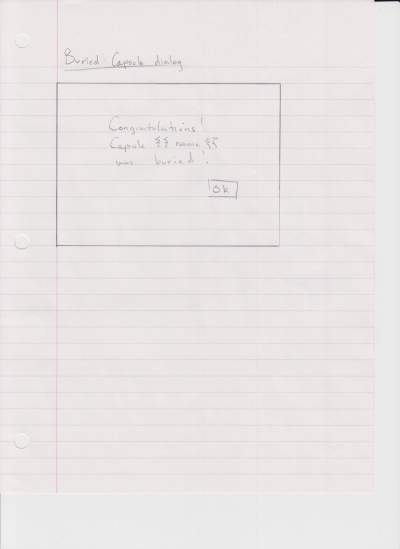 Buried Capsule dialog
Congratulations!
Capsule {{ name }}
was buried!
Ok